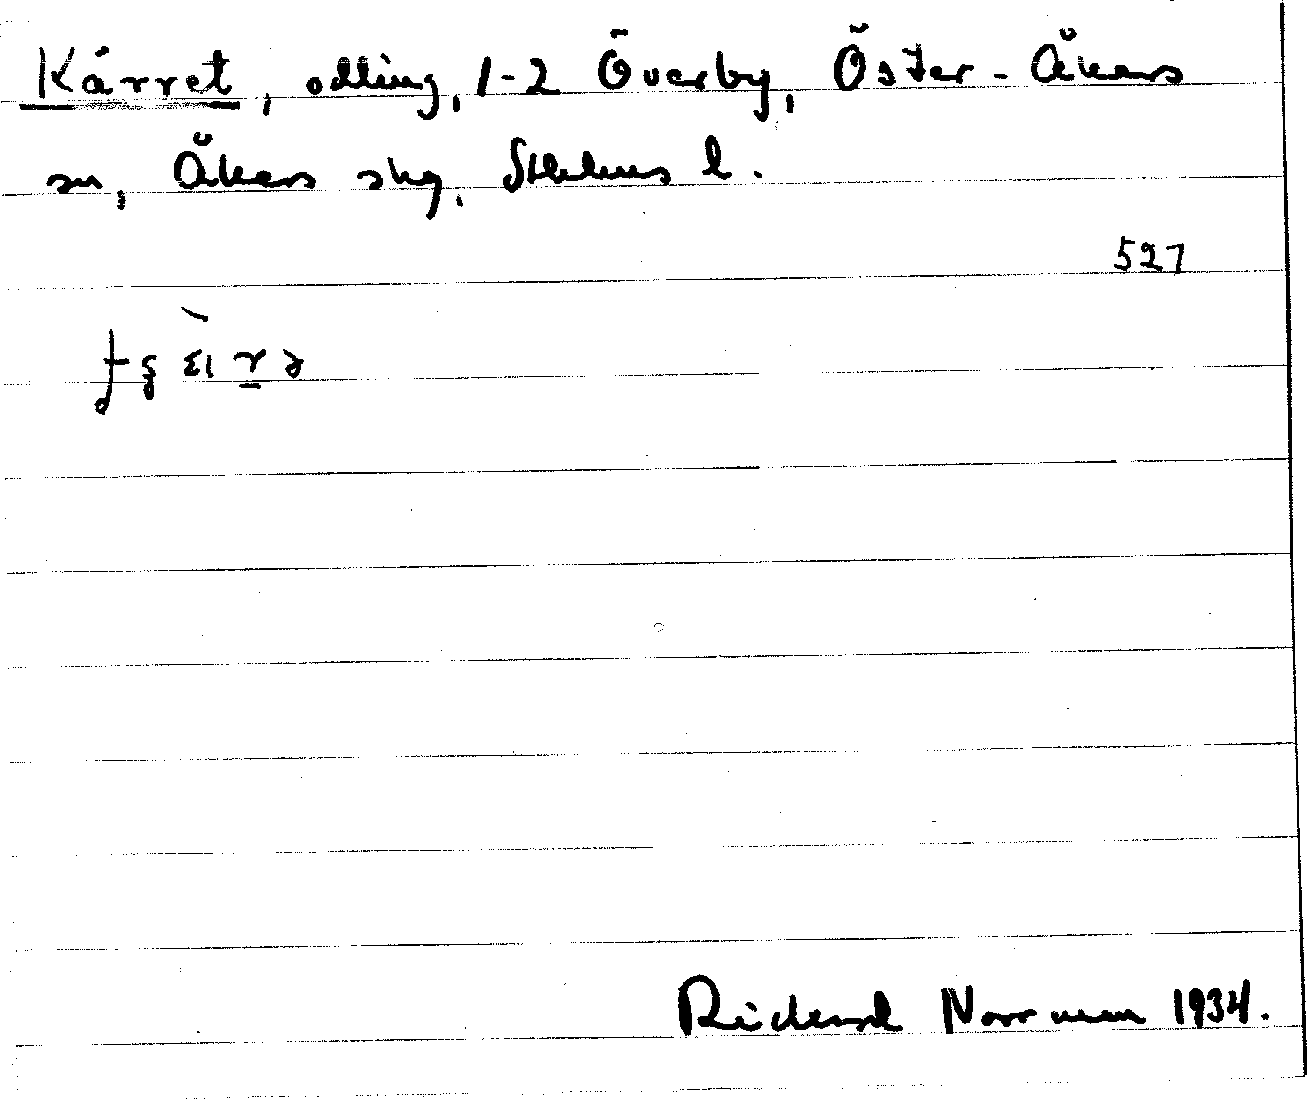 Kärret, odling, 1-2 Överby, Öster-Åkers
sn, Åkers skg. Sthlms l.
527
Rickard Norrman 1934.